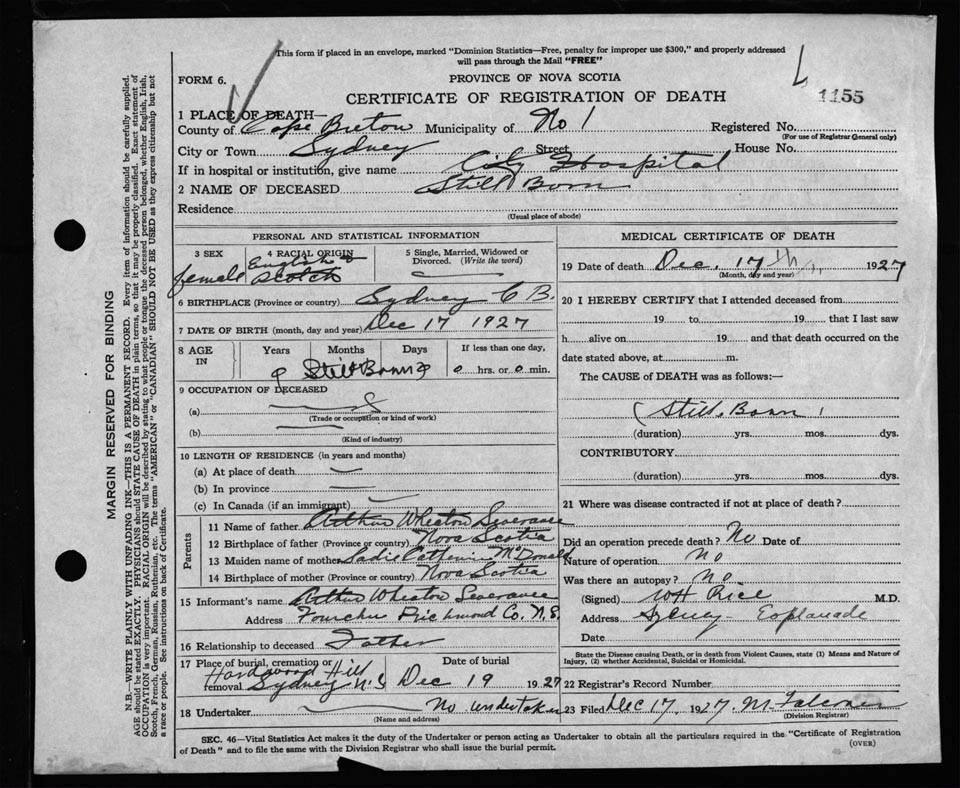 This form if placed in an envelope, marked "Dominion Statistics—Free, penalty for improper use $300," and properly addressed
will pass through the Mail "FREE"
FORM 6.
PROVINCE OF NOVA SCOTIA
CERTIFICATE OF REGISTRATION OF DEATH
1155
1 PLACE OF DEATH—
County of Cape Breton Municipality of No 1 Registered No.
(For use of Registrar General only)
City or Town Sydney Street House No.
If in hospital or institution, give name City Hospital
2 NAME OF DECEASED Still Born
Residence
(Usual place of abode)
PERSONAL AND STATISTICAL INFORMATION
3 SEX 4 RACIAL ORIGIN 5 Single, Married, Widowed or
Divorced. (Write the word)
female English & Scotch
6 BIRTHPLACE (Province or country) Sydney C B.
7 DATE OF BIRTH (month, day and year) Dec 17 1927
8 AGE IN Years Months Days If less than one day,
Still Born 0 hrs. or 0 min.
9 OCCUPATION OF DECEASED
(a)
(Trade or occupation or kind of work)
(b)
(Kind of industry)
10 LENGTH OF RESIDENCE (in years and months)
(a) At place of death
(b) In province
(c) In Canada (if an immigrant)
Parents
11 Name of father Arthur Wheaton Severance
12 Birthplace of father (Province or country) Nova Scotia
13 Maiden name of mother Sadie Catherin McDonald
14 Birthplace of mother (Province or country) Nova Scotia
15 Informant's name Arthur Wheaton Severance
Address Fourchu Richmond Co. N.S.
16 Relationship to deceased Father
17 Place of burial, cremation or removal Hardwood Hill Sydney N.S Date of burial Dec 19 1927
18 Undertaker No undertaker
(Name and address)
MEDICAL CERTIFICATE OF DEATH
19 Date of death Dec. 17th, 1927
(Month, day and year)
20 I HEREBY CERTIFY that I attended deceased from
19 to 19 that I last saw
h alive on 19 and that death occurred on the
date stated above, at m.
The CAUSE of DEATH was as follows:—
Still Born
(duration) yrs. mos. dys.
CONTRIBUTORY
(duration) yrs. mos. dys.
21 Where was disease contracted if not at place of death?
Did an operation precede death? No Date of
Nature of operation No
Was there an autopsy? No.
(Signed) WH Rice M.D.
Address Sydney Esplanade
Date
State the Disease causing Death, or in death from Violent Causes, state (1) Means and Nature of
Injury, (2) whether Accidental, Suicidal or Homicidal.
22 Registrar's Record Number
23 Filed Dec 17, 1927 M. Falconer
(Division Registrar)
SEC. 46—Vital Statistics Act makes it the duty of the Undertaker or person acting as Undertaker to obtain all the particulars required in the "Certificate of Registration
of Death" and to file the same with the Division Registrar who shall issue the burial permit.
(OVER)
MARGIN RESERVED FOR BINDING
N.B.—WRITE PLAINLY WITH UNFADING INK—THIS IS A PERMANENT RECORD. Every item of information should be carefully supplied.
AGE should be stated EXACTLY. PHYSICIANS should STATE CAUSE OF DEATH in plain terms, so that it may be properly classified. Exact statement of
OCCUPATION is very important. RACIAL ORIGIN will be described by stating to what people or tongue the deceased person belonged, whether English, Irish,
Scotch, French, German, Russian, Ruthenian, etc. The terms "AMERICAN" or "CANADIAN" SHOULD NOT BE USED as they express citizenship but not
a race or people. See instructions on back of Certificate.